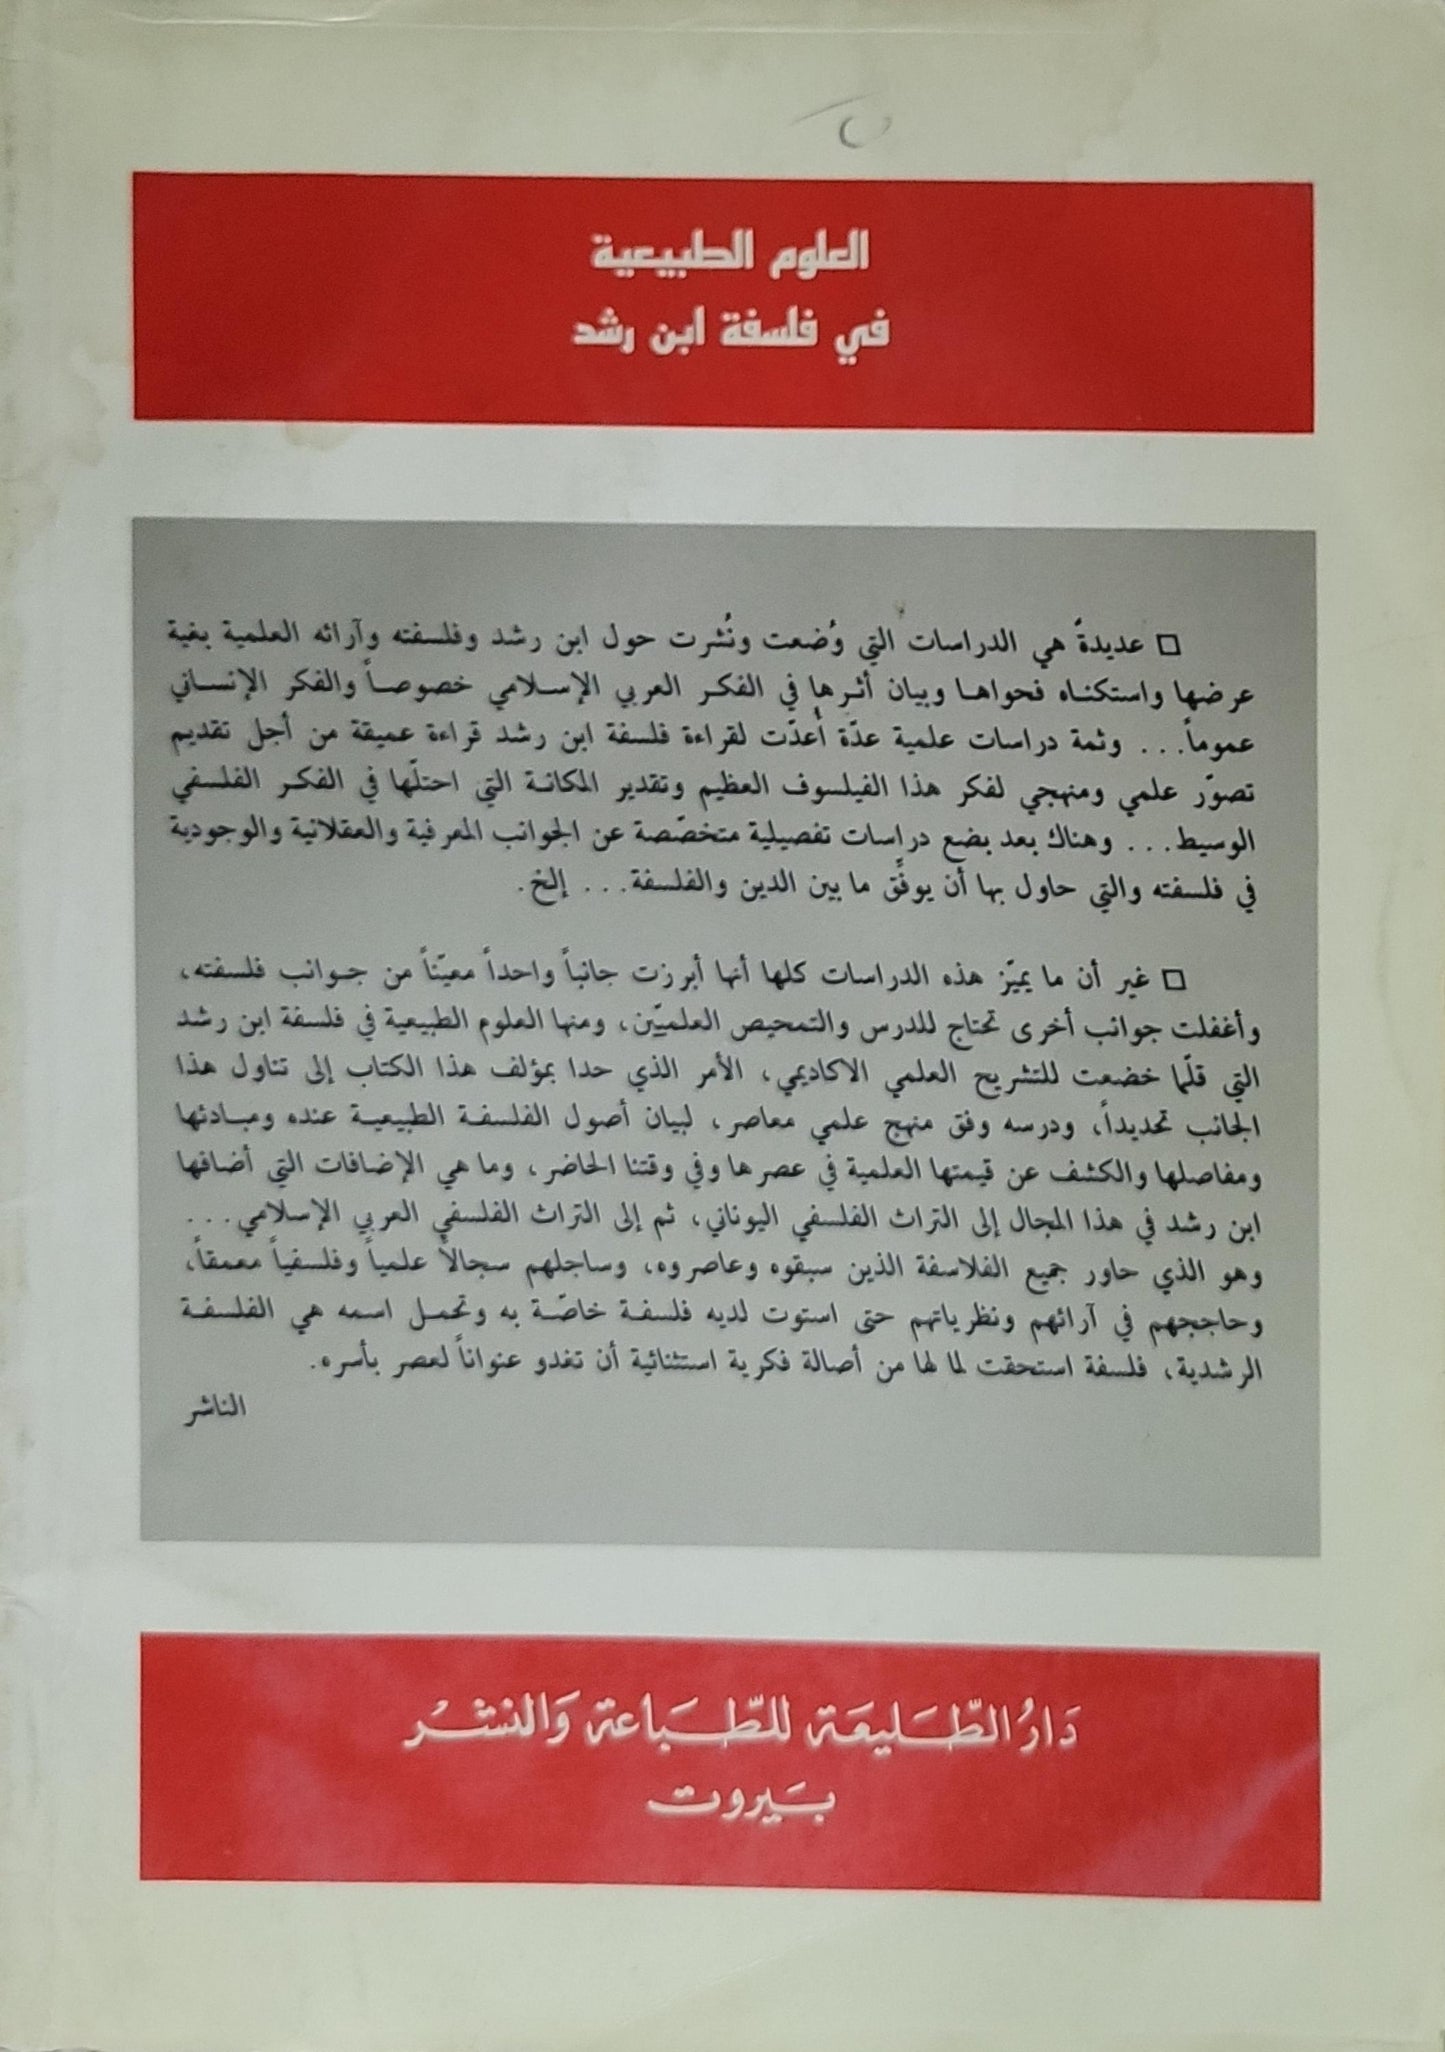 العلوم الطبيعية
في فلسفة ابن رشد
□ عديدةً هي الدراسات التي وُضعت ونُشرت حول ابن رشد وفلسفته وآرائه العلمية بغية
عرضها واستكناه فحواها وبيان أثرها في الفكر العربي الإسلامي خصوصاً والفكر الإنساني
عموماً... وثمة دراسات علمية عدّة أُعدّت لقراءة فلسفة ابن رشد قراءة عميقة من أجل تقديم
تصوّر علمي ومنهجي لفكر هذا الفيلسوف العظيم وتقدير المكانة التي احتلّها في الفكر الفلسفي
الوسيط... وهناك بعد بضع دراسات تفصيلية متخصّصة عن الجوانب المعرفية والعقلانية والوجودية
في فلسفته والتي حاول بها أن يوفّق ما بين الدين والفلسفة... إلخ.
□ غير أن ما يميّز هذه الدراسات كلها أنها أبرزت جانباً واحداً معيّناً من جوانب فلسفته،
وأغفلت جوانب أخرى تحتاج للدرس والتمحيص العلميّين، ومنها العلوم الطبيعية في فلسفة ابن رشد
التي قلّما خضعت للتشريح العلمي الاكاديمي، الأمر الذي حدا بمؤلف هذا الكتاب إلى تناول هذا
الجانب تحديداً، ودرسه وفق منهج علمي معاصر، لبيان أصول الفلسفة الطبيعية عنده ومبادئها
ومفاصلها والكشف عن قيمتها العلمية في عصرها وفي وقتنا الحاضر، وما هي الإضافات التي أضافها
ابن رشد في هذا المجال إلى التراث الفلسفي اليوناني، ثم إلى التراث الفلسفي العربي الإسلامي...
وهو الذي حاور جميع الفلاسفة الذين سبقوه وعاصروه، وساجلهم سجالاً علمياً وفلسفياً معمقاً،
وحاججهم في آرائهم ونظرياتهم حتى استوت لديه فلسفة خاصّة به وتحمل اسمه هي الفلسفة
الرشدية، فلسفة استحقت لما لها من أصالة فكرية استثنائية أن تغدو عنواناً لعصر بأسره.
الناشر
دَارُ الطَّليعَة للطّبَاعة وَالنشْر
بَيروت